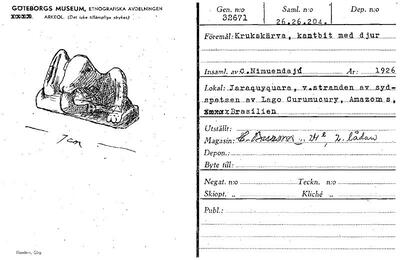 GÖTEBORGS MUSEUM, ETNOGRAFISKA AVDELNINGEN
ARKEOL. (Det icke tillämpliga strykes)
7 cm
Gen. n:o 32671
Saml. n:o 26.26.204.
Dep. n:o
Föremål: Krukskärva, kantbit med djur
Insaml. av: C. Nimuendajú År: 1926
Lokal: Jaraquyquara, v.stranden av syd-
spetsen av Lago Curumucury, Amazoms,
Brasilien
Utställt:
Magasin: 2. lådan
Depon.:
Byte till:
Negat. n:o Teckn. n:o
Skiopt. „ Kliché „
Publ.: